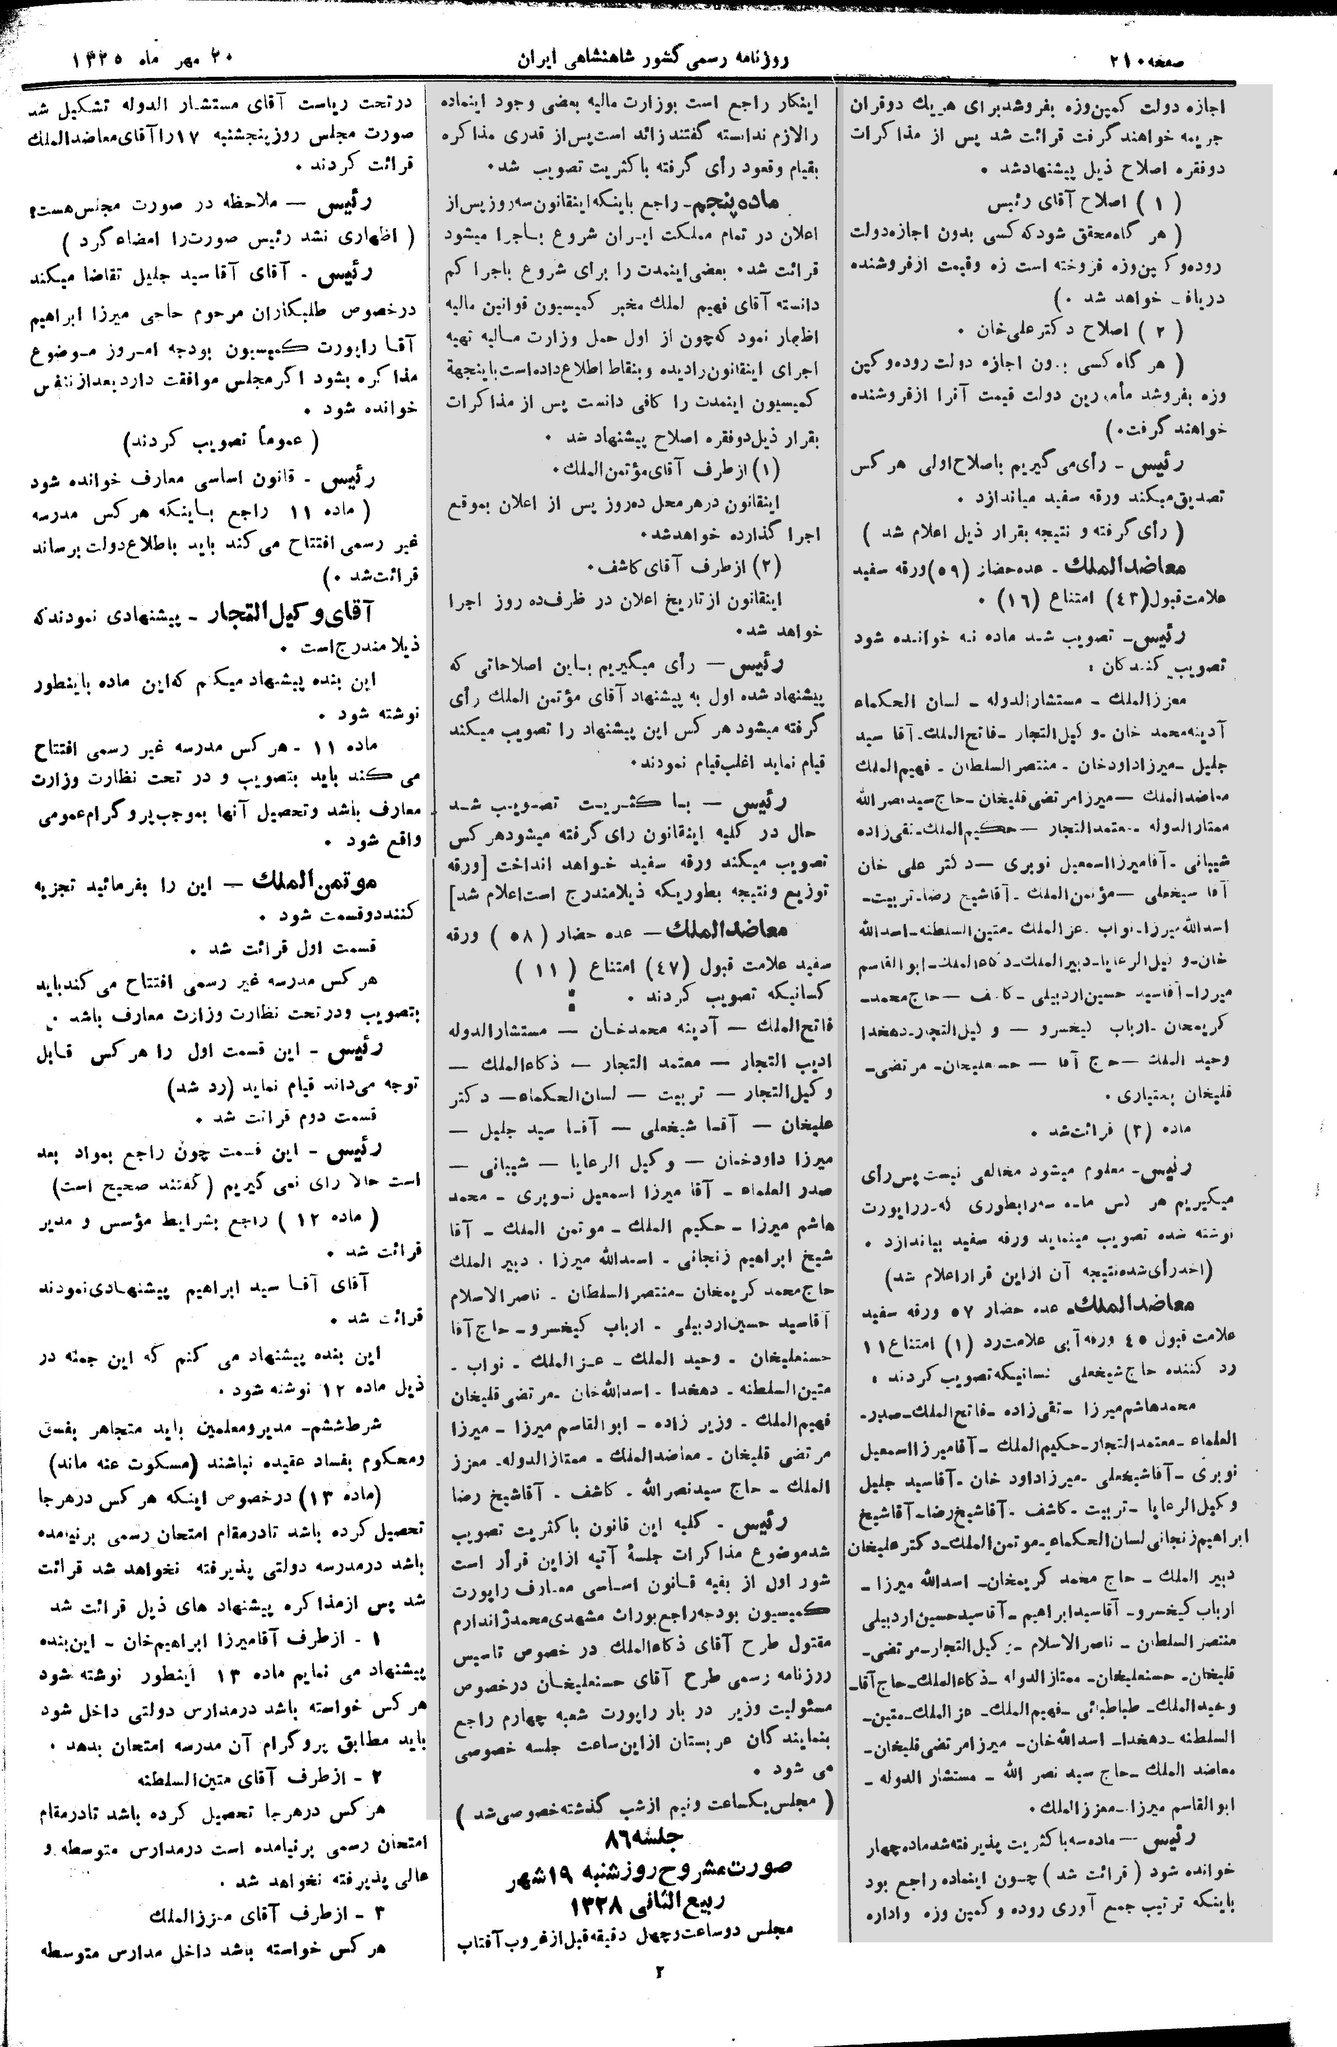 صفحه ۲۱۰
روزنامه رسمی کشور شاهنشاهی ایران
۲۰ مهر ماه ۱۳۲۵
اجازه دولت کمپن‌وزه بفروشد برای هر یك دوقران
جریمه خواهند گرفت قرائت شد پس از مذاکرات
دوفقره اصلاح ذیل پیشنهادشد ۰
(۱) اصلاح آقای رئیس
( هر گاه محقق شود که کسی بدون اجازه دولت
فروخته است زه وقیمت از فروشنده
خواهد شد ۰)
(۲) اصلاح دکتر علی خان ۰
( هر گاه کسی بدون اجازه دولت روده و کپن
وزه بفروشد مأمورین دولت قیمت آنرا از فروشنده
خواهند گرفت۰)
رئیس ـ رأی می گیریم باصلاح اولی هر کس
تصدیق میکند ورقه سفید میاندازد ۰
( رأی گرفته و نتیجه بقرار ذیل اعلام شد )
معاضدالملك ـ عده حضار (۵۹) ورقه سفید
علامت قبول (۴۳) امتناع (۱۶) ۰
رئیس ـ تصویب شد ماده نه خوانده شود
تصویب کنندکان :
معززالملك ـ مستشارالدوله ـ لسان الحکماء
آدینه محمد خان ـ وکیل التجار ـ فاتح الملك ـ آقا سید
جلیل ـ میرزا داودخان ـ منتصر السلطان ـ فهیم الملك
معاضدالملك ـ میرزا مرتضی قلیخان ـ حاج سید نصرالله
ممتازالدوله ـ معتمد التجار ـ حکیم الملك ـ تقی زاده
شیبانی ـ آقا میرزا اسمعیل نوبری ـ دکتر علی خان
آقا شیخعلی ـ مؤتمن الملك ـ آقاشیخ رضا ـ تربیت ـ
اسدالله میرزا ـ نواب ـ عزالملك ـ متین السلطنه ـ اسدالله
خان ـ وکیل الرعایا ـ دبیرالملك ـ ذکاءالملك ـ ابوالقاسم
میرزا ـ آقاسید حسین اردبیلی ـ کاشف ـ حاج محمد ـ
کریمخان ـ ارباب کیخسرو ـ وکیل التجار ـ دهخدا
وحید الملك ـ حاج آقا ـ حسنعلیخان ـ مرتضی ـ
قلیخان بختیاری ۰
ماده (۳) قرائت شد ۰
رئیس ـ معلوم میشود مخالفی نیست پس رأی
میگیریم هر کس ماده سه را بطوری که در راپورت
نوشته شده تصویب مینماید ورقه سفید بیاندازد ۰
(اخذ رأی شده نتیجه آن از این قرار اعلام شد)
معاضدالملك ـ عده حضار ۵۷ ورقه سفید
علامت قبول ۴۵ ورقه آبی علامت رد (۱) امتناع ۱۱
رد کننده حاج شیخعلی کسانیکه تصویب کردند ۰
محمدهاشم میرزا ـ تقی زاده ـ فاتح الملك ـ صدر ـ
العلماء ـ معتمد التجار ـ حکیم الملك ـ آقا میرزا اسمعیل
نوبری ـ آقاشیخعلی ـ میرزا داود خان ـ آقاسید جلیل
وکیل الرعایا ـ تربیت ـ کاشف ـ آقا شیخ رضا ـ آقا شیخ
ابراهیم زنجانی لسان الحکماء ـ موتمن الملك ـ دکتر علیخان
دبیر الملك ـ حاج محمد کریمخان ـ اسدالله میرزا ـ
ارباب کیخسرو ـ آقاسید ابراهیم ـ آقاسید حسین اردبیلی
منتصر السلطان ـ ناصر الاسلام ـ وکیل التجار ـ مرتضی ـ
قلیخان ـ حسنعلیخان ـ ممتازالدوله ـ ذکاءالملك ـ حاج آقا ـ
وحیدالملك ـ طباطبائی ـ فهیم الملك ـ عزالملك ـ متین ـ
السلطنه ـ دهخدا ـ اسدالله خان ـ میرزا مرتضی قلیخان ـ
معاضد الملك ـ حاج سید نصر الله ـ مستشار الدوله ـ
ابوالقاسم میرزا ـ معززالملك ۰
رئیس ـ ماده سه با کثریت پذیرفته شد ماده چهار
خوانده شود ( قرائت شد ) چون اینماده راجع بود
باینکه ترتیب جمع آوری روده و کمپن وزه واداره
اینکار راجع است بوزارت مالیه بعضی وجود اینماده
رالازم ندانسته گفتند زائد است پس از قدری مذاکره
بقیام وقعود رأی گرفته باکثریت تصویب شد۰
ماده پنجم ـ راجع باینکه اینقانون سه روز پس از
اعلان در تمام مملکت ایران شروع باجرا میشود
قرائت شد۰ بعضی اینمدت را برای شروع باجرا کم
دانسته آقای فهیم الملك مخبر کمیسیون قوانین مالیه
اظهار نمود که چون از اول حمل وزارت مالیه تهیه
اجرای اینقانون رادیده و بنقاط اطلاع داده است باینجهة
کمیسیون اینمدت را کافی دانست پس از مذاکرات
بقرار ذیل دوفقره اصلاح پیشنهاد شد ۰
(۱) از طرف آقای مؤتمن الملك۰
اینقانون در هر محل ده روز پس از اعلان بموقع
اجرا گذارده خواهد شد۰
(۲) از طرف آقای کاشف۰
اینقانون از تاریخ اعلان در ظرف ده روز اجرا
خواهد شد۰
رئیس ـ رأی میگیریم باین اصلاحاتی که
پیشنهاد شده اول به پیشنهاد آقای مؤتمن الملك رأی
گرفته میشود هر کس این پیشنهاد را تصویب میکند
قیام نماید اغلب قیام نمودند۰
رئیس ـ با کثریت تصویب شد
حال در کلیه اینقانون رای گرفته میشود هر کس
تصویب میکند ورقه سفید خواهد انداخت [ورقه
توزیع ونتیجه بطوریکه ذیلا مندرج است اعلام شد]
معاضدالملك ـ عده حضار (۵۸) ورقه
سفید علامت قبول (۴۷) امتناع (۱۱)
کسانیکه تصویب کردند :
فاتح الملك ـ آدینه محمدخان ـ مستشارالدوله
ادیب التجار ـ معتمد التجار ـ ذکاءالملك ـ
وکیل التجار ـ تربیت ـ لسان الحکماء ـ دکتر
علیخان ـ آقا شیخعلی ـ آقا سید جلیل ـ
میرزا داودخان ـ وکیل الرعایا ـ شیبانی ـ
صدر العلماء ـ آقا میرزا اسمعیل نوبری ـ محمد
هاشم میرزا ـ حکیم الملك ـ موتمن الملك ـ آقا
شیخ ابراهیم زنجانی ـ اسدالله میرزا ـ دبیر الملك
حاج محمد کریمخان ـ منتصر السلطان ـ ناصر الاسلام
آقاسید حسین اردبیلی ـ ارباب کیخسرو ـ حاج آقا
حسنعلیخان ـ وحید الملك ـ عز الملك ـ نواب ـ
متین السلطنه ـ دهخدا ـ اسدالله خان ـ مرتضی قلیخان
فهیم الملك ـ وزیر زاده ـ ابوالقاسم میرزا ـ میرزا
مرتضی قلیخان ـ معاضدالملك ـ ممتازالدوله ـ معزز
الملك ـ حاج سید نصرالله ـ کاشف ـ آقاشیخ رضا
رئیس ـ کلیه این قانون باکثریت تصویب
شد موضوع مذاکرات جلسهٔ آتیه از این قرار است
شور اول از بقیه قانون اساسی معارف راپورت
کمیسیون بودجه راجع بوراث مشهدی محمد ژاندارم
مقتول طرح آقای ذکاءالملك در خصوص تاسیس
روزنامه رسمی طرح آقای حسنعلیخان در خصوص
مسئولیت وزیر در بار راپورت شعبه چهارم راجع
بنمایندگان عربستان از این ساعت جلسه خصوصی
می شود ۰
( مجلس یکساعت ونیم از شب گذشته خصوصی شد )
جلسه ۸۶
صورت مشروح روز شنبه ۱۹ شهر
ربیع الثانی ۱۳۲۸
مجلس دو ساعت و چهل دقیقه قبل از غروب آفتاب
در تحت ریاست آقای مستشار الدوله تشکیل شد
صورت مجلس روز پنجشنبه ۱۷ را آقای معاضدالملك
قرائت کردند ۰
رئیس ـ ملاحظه در صورت مجلس هست؟
( اظهاری نشد رئیس صورت را امضاء کرد )
رئیس ـ آقای آقا سید جلیل تقاضا میکند
درخصوص طلبکاران مرحوم حاجی میرزا ابراهیم
آقا راپورت کمیسیون بودجه امروز موضوع
مذاکره بشود اکر مجلس موافقت دارد بعد از تنفس
خوانده شود ۰
( عموماً تصویب کردند)
رئیس ـ قانون اساسی معارف خوانده شود
( ماده ۱۱ راجع باینکه هر کس مدرسه
غیر رسمی افتتاح می کند باید باطلاع دولت برساند
قرائت شد ۰)
آقای وکیل التجار ـ پیشنهادی نمودند که
ذیلا مندرج است ۰
این بنده پیشنهاد میکنم که این ماده باینطور
نوشته شود ۰
ماده ۱۱ ـ هر کس مدرسه غیر رسمی افتتاح
می کند باید بتصویب و در تحت نظارت وزارت
معارف باشد وتحصیل آنها بموجب پروگرام عمومی
واقع شود ۰
موتمن الملك ـ این را بفرمائید تجزیه
کنند دوقسمت شود ۰
قسمت اول قرائت شد ۰
هر کس مدرسه غیر رسمی افتتاح می کند باید
بتصویب ودر تحت نظارت وزارت معارف باشد ۰
رئیس ـ این قسمت اول را هر کس قابل
توجه می‌داند قیام نماید (رد شد)
قسمت دوم قرائت شد ۰
رئیس ـ این قسمت چون راجع بمواد بعد
است حالا رای نمی گیریم (گفتند صحیح است)
( ماده ۱۲ ) راجع بشرایط مؤسس و مدیر
قرائت شد ۰
آقای آقا سید ابراهیم پیشنهادی نمودند
قرائت شد ۰
این بنده پیشنهاد می کنم که این جمله در
ذیل ماده ۱۲ نوشته شود ۰
شرط ششم ـ مدیر ومعلمین باید متجاهر بفسق
ومحکوم بفساد عقیده نباشند (مسکوت عنه ماند)
(ماده ۱۳) درخصوص اینکه هر کس در هر جا
تحصیل کرده باشد تا در مقام امتحان رسمی بر نیامده
باشد در مدرسه دولتی پذیرفته نخواهد شد قرائت
شد پس از مذاکره پیشنهاد های ذیل قرائت شد
۱ ـ از طرف آقا میرزا ابراهیم خان ـ این بنده
پیشنهاد می نمایم ماده ۱۳ اینطور نوشته شود
هر کس خواسته باشد در مدارس دولتی داخل شود
باید مطابق پروگرام آن مدرسه امتحان بدهد ۰
۲ ـ از طرف آقای متین السلطنه
هر کس در هر جا تحصیل کرده باشد تا در مقام
امتحان رسمی بر نیامده است در مدارس متوسطه و
عالی پذیرفته نخواهد شد ۰
۳ ـ از طرف آقای معزز الملك
هر کس خواسته باشد داخل مدارس متوسطه
۲